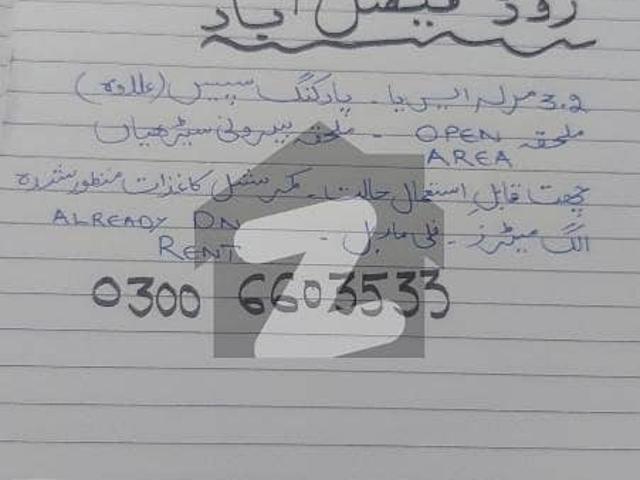 روڈ فیصل آباد
3.2 مرلہ ایریا - پارکنگ سپیس (علاوہ)
ملحقہ OPEN AREA - ملحقہ بیرونی سیڑھیاں
چھت قابل استعمال حالت - کمرشل کاغذات منظور شدہ
الگ میٹرز - فل ماربل - ALREADY ON RENT
0300 6603533